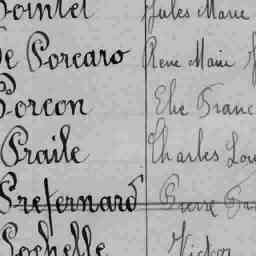 Pointel Jules Marie
De Porcaro Rene Marie
Porcon Elie Franc
Praile Charles Lou
Prefernard Pierre
Rochelle Victor